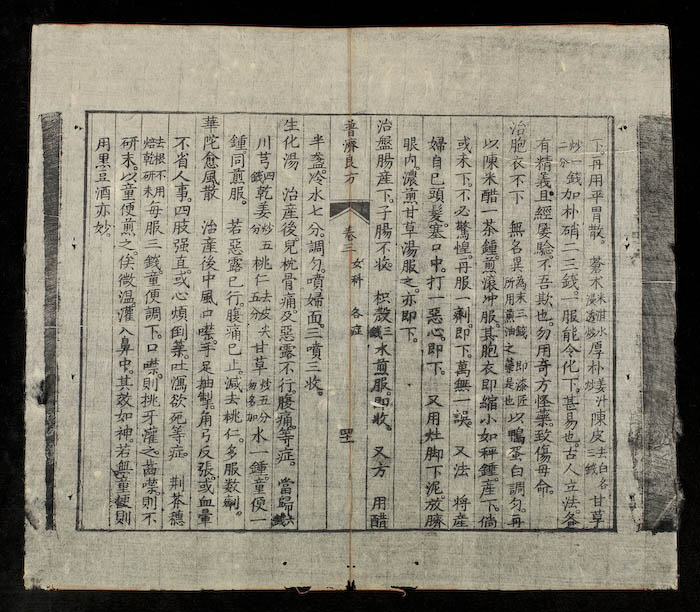 下再用平胃散。蒼朮米泔水浸透炒厚朴姜汁炒陳皮去白各三錢甘草
炒二分一錢加朴硝二三錢。一服能令化下甚易也。古人立法。各
有精義。且經屡验。不吾欺也。勿用奇方怪藥。致傷母命。
治胞衣不下　無名異為末三錢即漆匠所用熬油之藥是也以鴨蛋白調匀。再
以陳米醋一茶鍾。煎滚冲服。其胞衣即縮小如秤錘。産下。倘
或未下。不必驚惶。再服一劑。即下。萬無一誤。　又法　將産
婦自已頭髪。塞口中。打一惡心。即下。　又用灶脚下泥。放臍
眼内。濃煎甘草湯服之。亦即下。
治盤腸産下。子腸不收　枳殼三錢水煎服。即收。　又方　用醋
普濟良方　卷三　女科　各症
半盏。冷水七分。調匀。噴婦面。三噴三收。
生化湯　治産後。兒枕骨痛。及惡露不行。腹痛。等症。　當歸六錢
川芎四錢乾姜炒五分桃仁去皮尖五分甘草炒五分勿多加水一鍾。童便一
鍾。同煎服。　若惡露已行。腹痛已止。減去桃仁。多服数劑。
華陀愈風散　治産後中風口噤。手足抽掣。角弓反張。或血暈
不省人事。四肢强直。或心煩倒築。吐瀉欲死等症。　荆芥穗
去根不用焙乾研末每服三錢。童便調下。口噤則挑牙灌之。齒噤。則不
研末。以童便煎之。俟微温。灌入鼻中。其效如神。若無童便則
用黒豆酒亦妙。